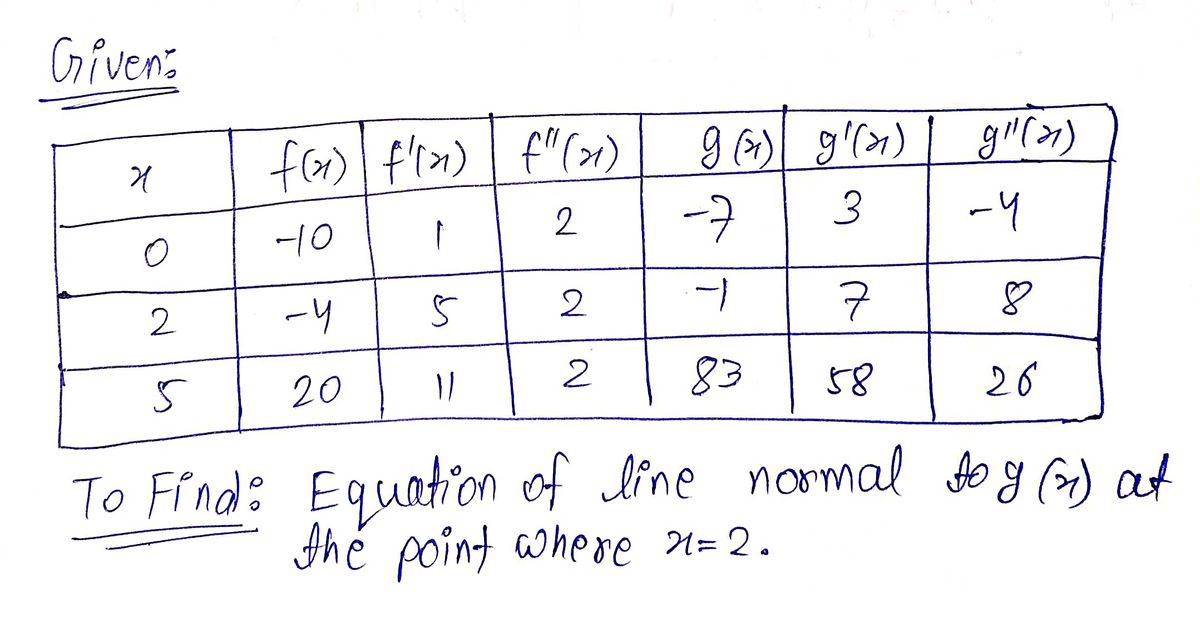 Given:
x f(x) f'(x) f"(x) g(x) g'(x) g"(x)
0 -10 1 2 -7 3 -4
2 -4 5 2 -1 7 8
5 20 11 2 83 58 26
To Find: Equation of line normal to g(x) at
the point where x=2.